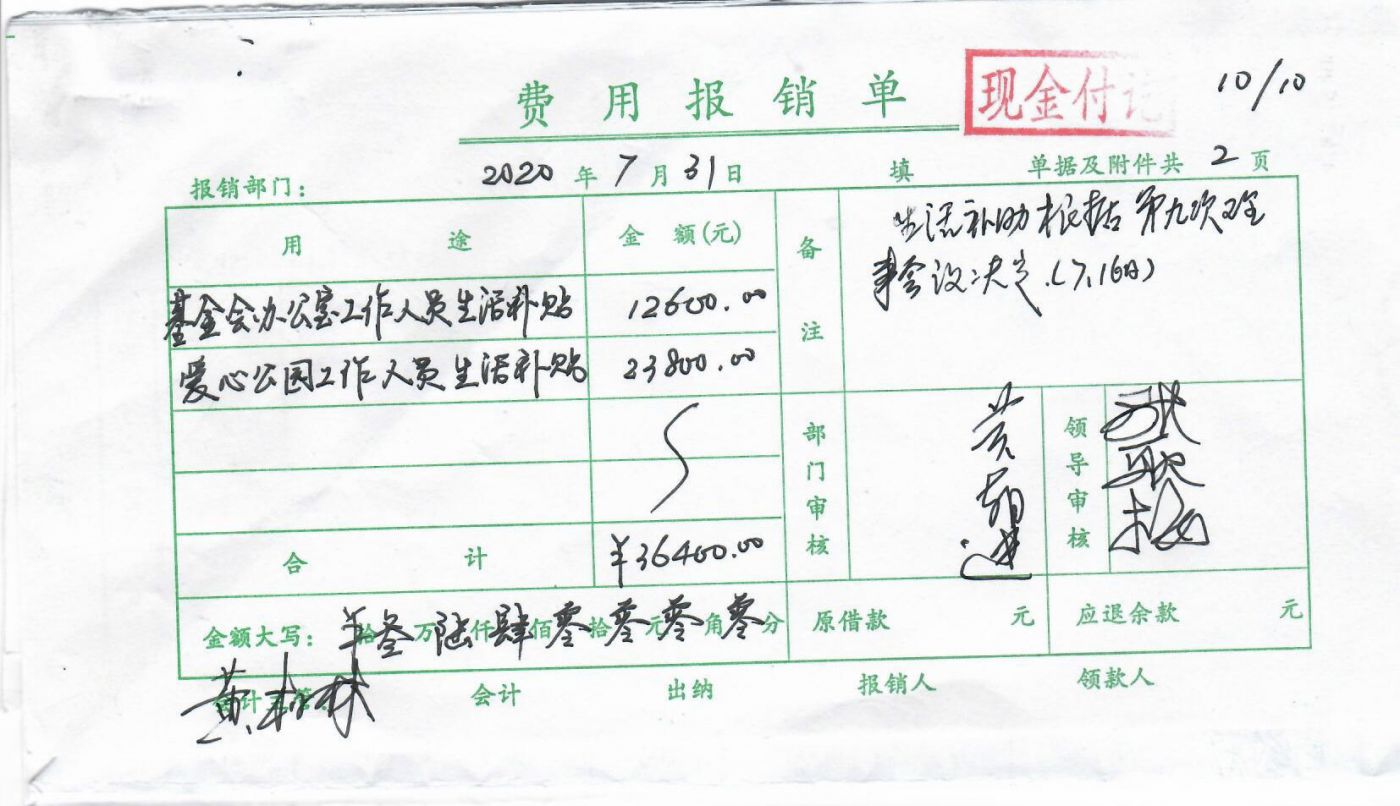 费用报销单 现金付讫 10/10
报销部门: 2020年7月31日 填 单据及附件共2页
用途 金额(元) 备注 生活补助根据第九次理
事会议决定.(7.16日)
基金会办公室工作人员生活补贴 12600.00
爱心公园工作人员生活补贴 23800.00
部门审核 黄 领导审核 张
合计 ¥36400.00
金额大写: ¥拾叁万陆仟肆佰零拾零元零角零分 原借款 元 应退余款 元
会计主管 黄林 会计 出纳 报销人 领款人